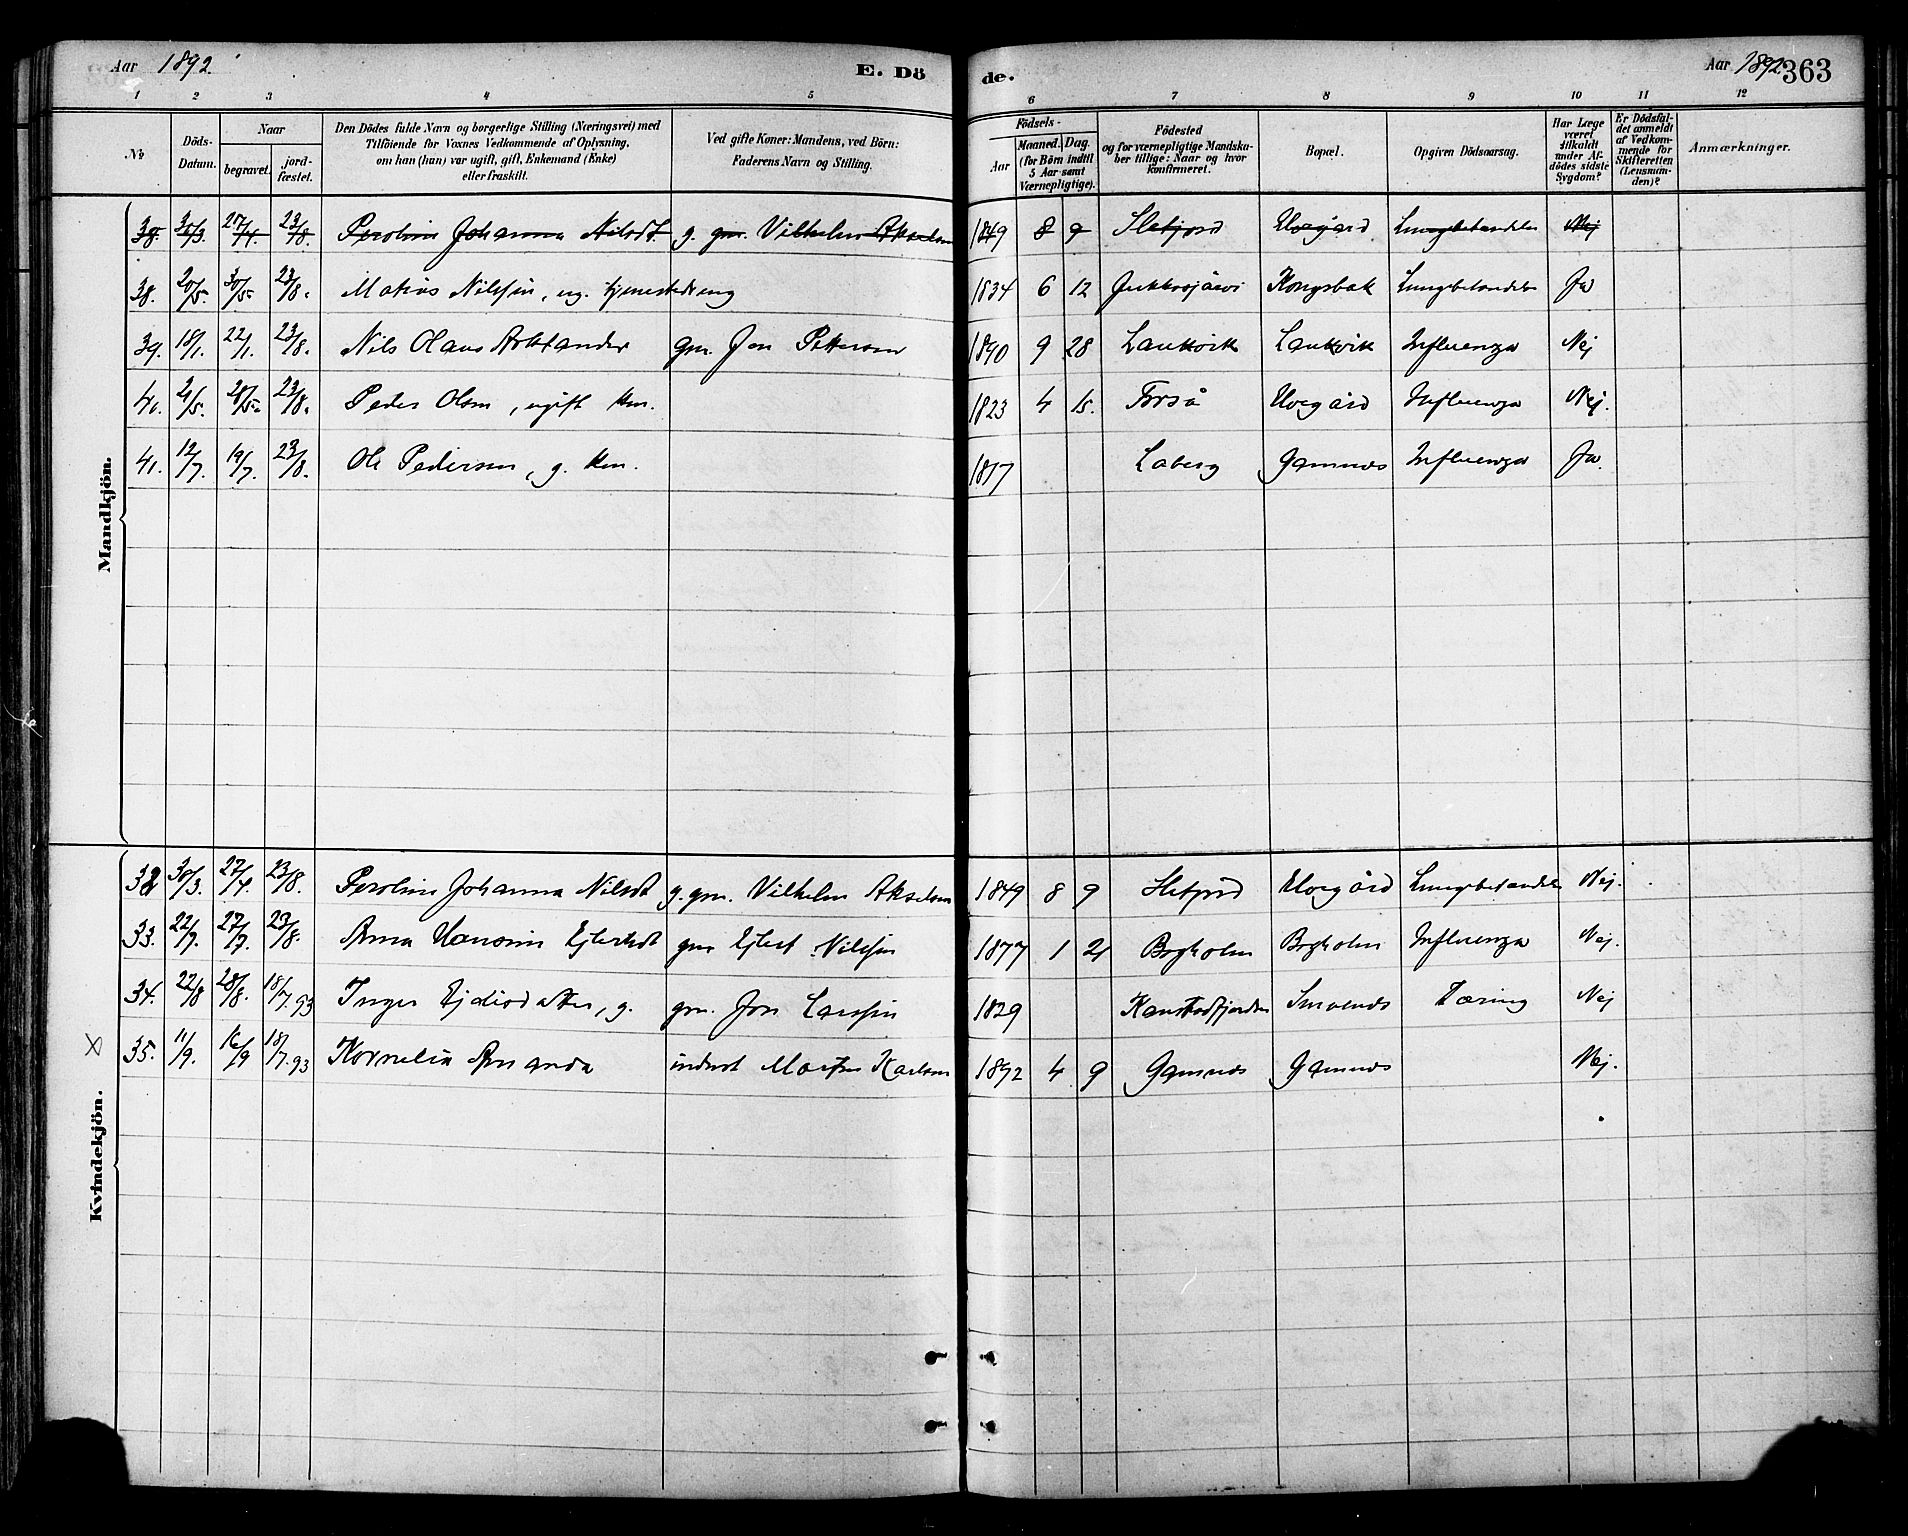 Aar 1892. E. Dö de. Aar 1892 363
1 2 3 4 5 6 7 8 9 10 11 12
No Döds-Datum. Naar begravet. jord-fæstet. Den Dödes fulde Navn og borgerlige Stilling (Næringsvei) med Tilföiende for Voxnes Vedkommende af Oplysning, om han (hun) var ugift, gift, Enkemand (Enke) eller fraskilt. Ved gifte Koner: Mandens, ved Börn: Faderens Navn og Stilling. Födsels- Aar Maaned. Dag. (for Börn indtil 5 Aar samt Værnepligtige). Födested og for værnepligtige Mandskaber tillige: Naar og hvor konfirmeret. Bopæl. Opgiven Dödsaarsag. Har Læge været tilkaldt under Afdödes sidste Sygdom? Er Dödsfaldet anmeldt af Vedkommende for Skifteretten (Lensmanden)? Anmærkninger.
Mandkjön.
38. 30/3. 27/4. 23/8. Peroline Johanna Nilsdt. g. gm. Vilhelm Akselsen 1849 8 9 Slefjord Uvegård Lungebetændelse Nej
38. 20/5. 30/5. 23/8. Matias Nilssen, ug. tjenestedreng 1834 6 12 Jukkasjärvi Kongsbak Lungebetændelse Ja
39. 18/1. 22/1. 23/8. Nils Olaus Arktander gm. Jon Pettersen 1890 9 28 Laukvik Laukvik Influenza Nej
40. 21/5. 28/5. 23/8. Peder Olsen, ugift km. 1823 4 15. Forså Uvegård Influenza Nej.
41. 12/7. 19/7. 23/8. Ole Pedersen, g. km. 1817 Laberg Gamnes Influenza Ja.
Kvindekjön.
32 30/3. 27/4. 23/8. Peroline Johanna Nilsdt g. gm. Vilhelm Akselsen 1849 8 9 Slefjord Uvegård Lungebetændelse Nej.
33. 22/7. 27/7. 23/8. Anna Hansine Ejlertsdt gm Ejlert Nilssen 1877 1 21 Bogholm Bogholm Influenza Nej.
34. 22/8 28/8. 18/7.93 Inger Ejdisdatter, g. gm. Jon Larssen 1829 Kanstadfjorden Smalnes Tæring Nej
35. 11/9. 16/9 18/7.93 Kornelia Amanda inderst Morten Karlsen 1892 4 9 Gamnes Gamnes Nej.